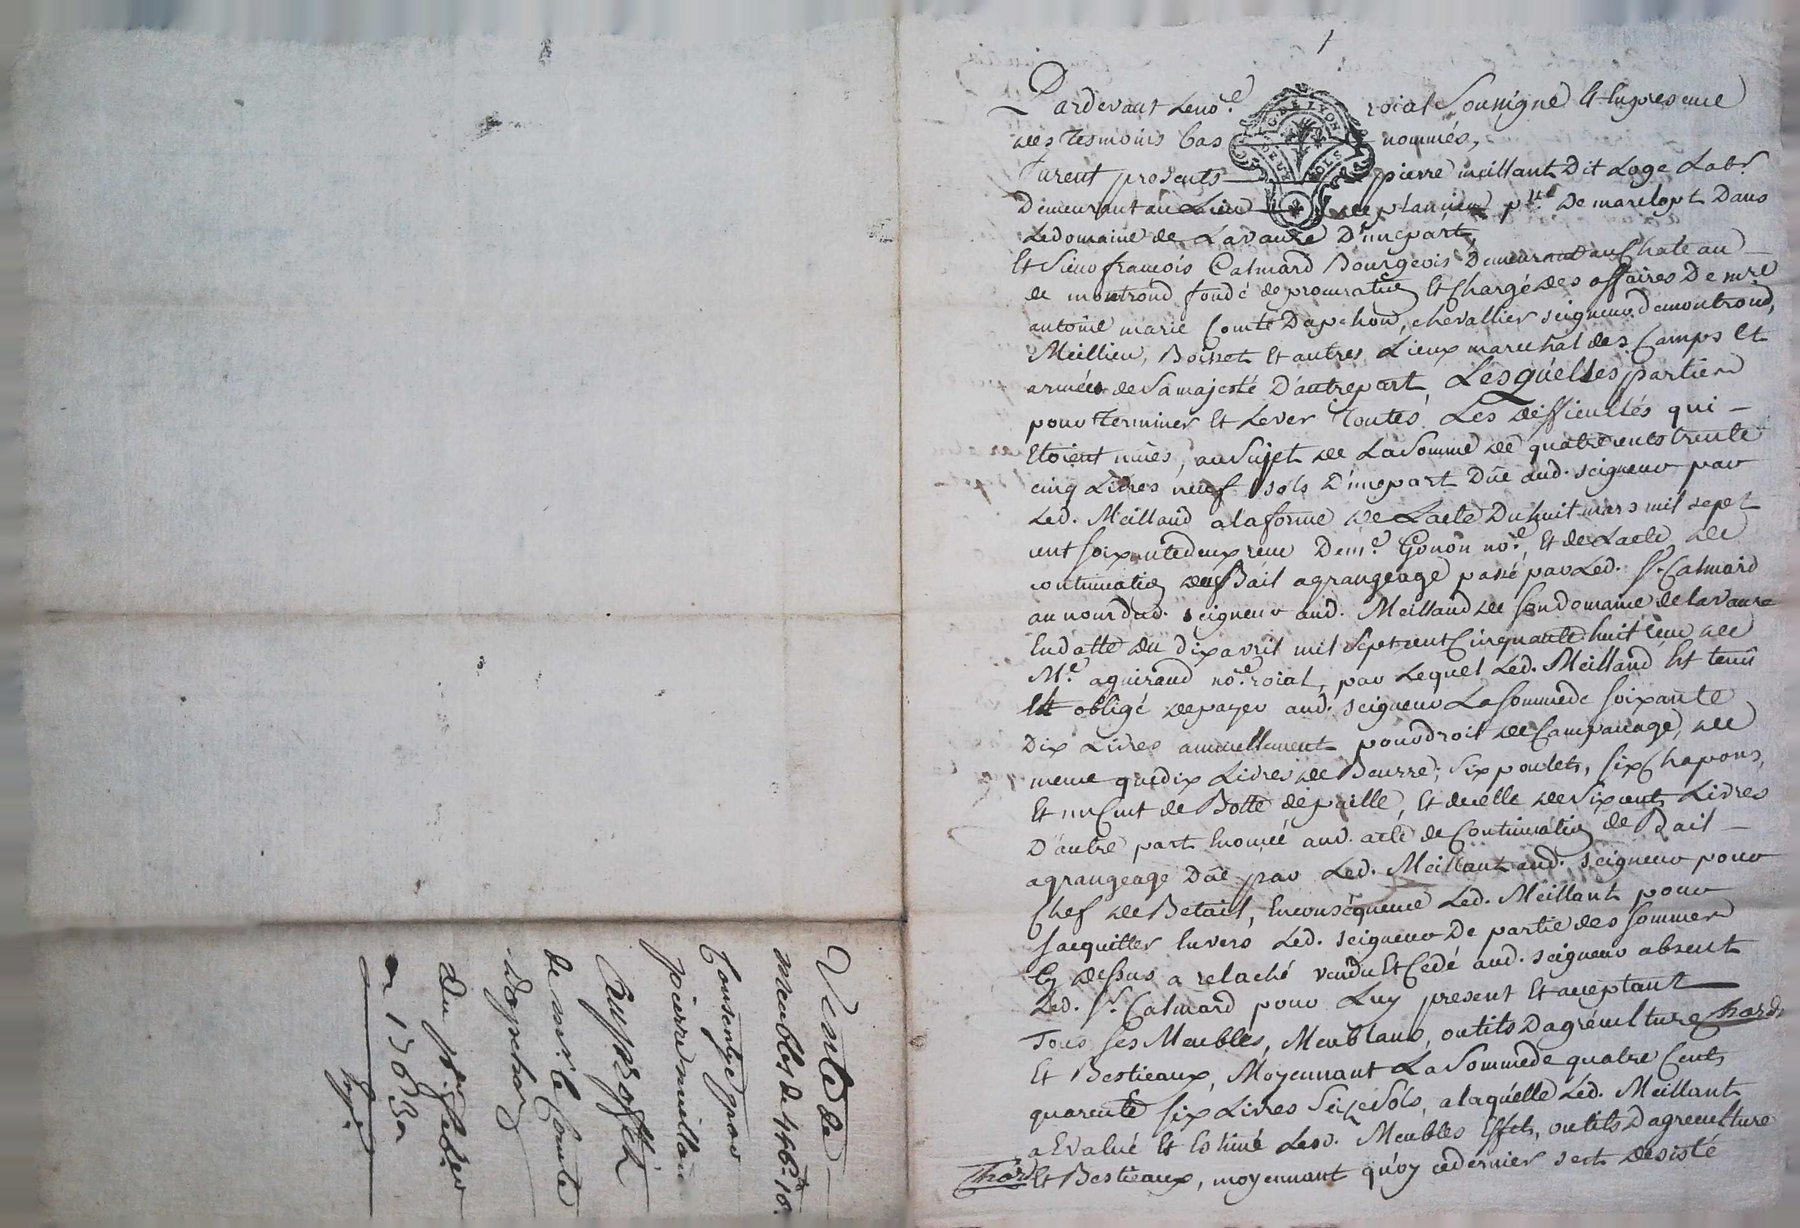 1
Pardevant Le no.e roial Soussigné Et En presence
des Tesmoins bas nommés,
Furent presents pierre meillant Dit Loge Lab.r
Demeurant au Lieu de plancieu p.sse De marclopt Dans
Le domaine de Lavaure D'une part,
Et Sieur françois Calmard Bourgeois Demeurant au Chateau
de montrond fondé de procuration Et Chargé des affaires De mre
antoine marie Comte Dapchon, chevallier seigneur de montrond,
Meillieu, Boisset Et autres Lieux marechal des Camps Et
armées de Sa majesté D'autre part, Lesquelles parties
pour terminer Et Lever Toutes Les difficultés qui
Etoient mües, au Sujet de La Somme de quatre cents trente
cinq Livres neuf sols D'une part Düe aud. seigneur par
Led. Meilland a la forme de L'acte Du huit mars mil sept
cent soixante deux reçu De m.e Gonon no.e, Et de L'acte de
continuation du Bail a grangeage passé par Led. S.r Calmard
au nom dud. seigneur aud. Meilland de son domaine de lavaure
En datte du dix avril mil Sept cent Cinquante huit reçu de
M.e aguiraud no.e roial, par Lequel Led. Meilland Est tenu
Et obligé de payer aud. seigneur La Somme de soixante
Dix Livres annuellement pour droit de Campanage, de
meme que dix Livres de Beurre, Six poulets, six Chapons,
Et un Cent de Botte de paille, Et de celle de Six cents Livres
D'autre part Enoncée aud. acte de Continuation de Bail
a grangeage Düe par Led. Meillant aud. seigneur pour
Chef de Betail, En consequence Led. Meillant pour
s'acquitter Envers Led. seigneur De partie des sommes
Cy dessus a relaché vendu Et Cedé aud. seigneur absent
Led. S.r Calmard pour Luy present Et acceptant
Tous ses Meubles, Meublans, outils D'agréculture
Et Bestieaux, Moyennant La Somme de quatre Cents
quarente six Livres Seize Sols, a laquelle Led. Meillant
a Evalué Et Estimé Lesd. Meubles Effets, outils D'agreculture
Et Bestieaux, moyennant quoy ce dernier s'est desisté
Vente de
meubles de 446 16
Consentye par
pierre meillan
au proffit
de mr. le Comte
dapchon
Du
1763